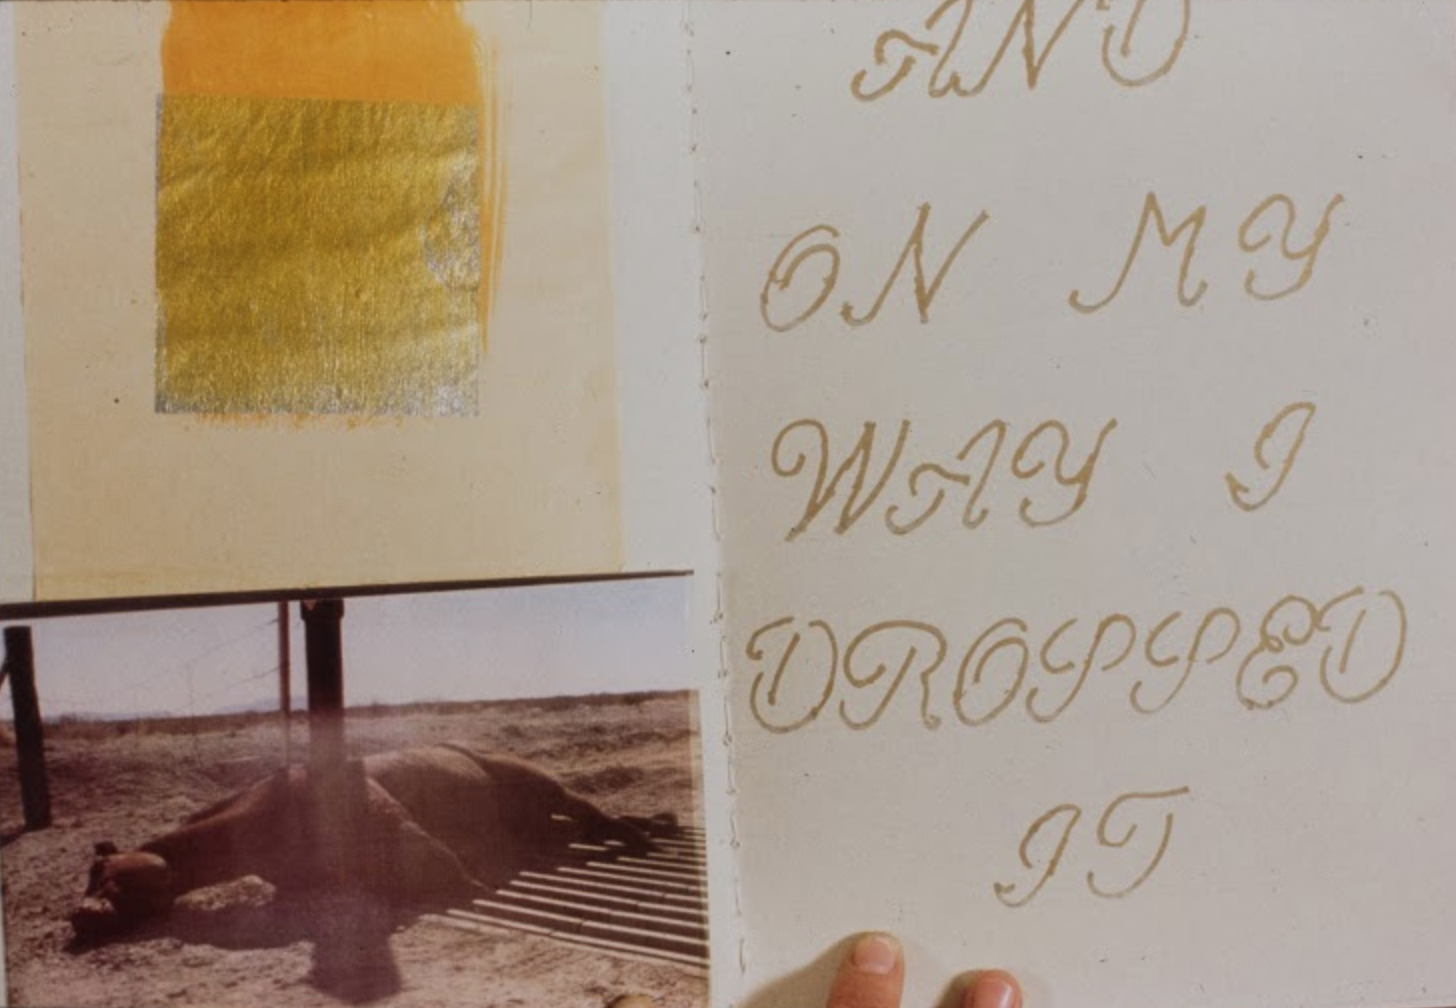 AND
ON MY
WAY I
DROPPED
IT